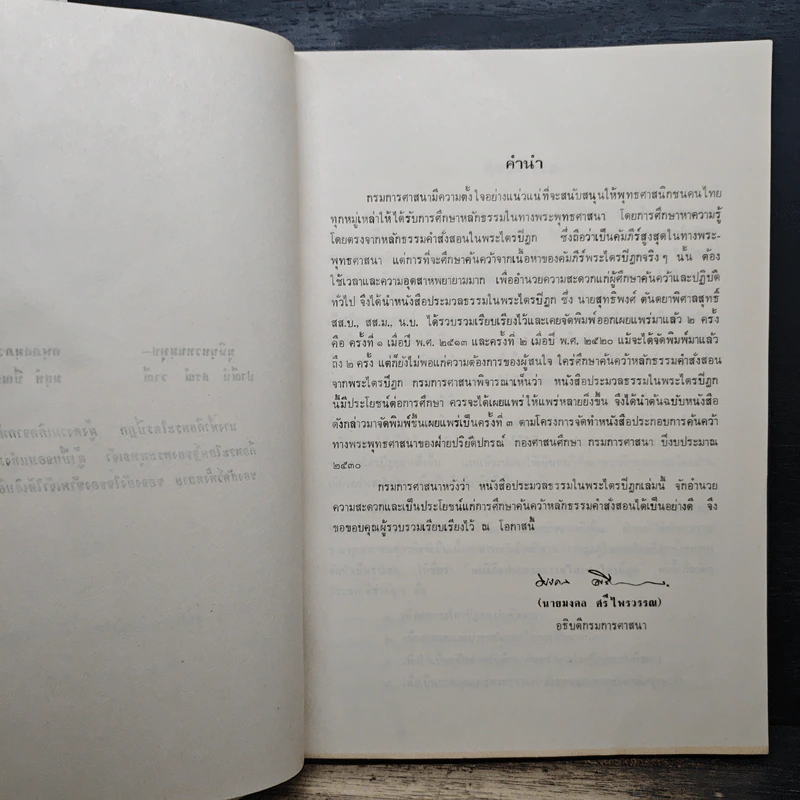 คำนำ
กรมการศาสนามีความตั้งใจอย่างแน่วแน่ที่จะสนับสนุนให้พุทธศาสนิกชนคนไทย
ทุกหมู่เหล่าให้ได้รับการศึกษาหลักธรรมในทางพระพุทธศาสนา โดยการศึกษาหาความรู้
โดยตรงจากหลักธรรมคำสั่งสอนในพระไตรปิฎก ซึ่งถือว่าเป็นคัมภีร์สูงสุดในทางพระ-
พุทธศาสนา แต่การที่จะศึกษาค้นคว้าจากเนื้อหาของคัมภีร์พระไตรปิฎกจริง ๆ นั้น ต้อง
ใช้เวลาและความอุตสาหพยายามมาก เพื่ออำนวยความสะดวกแก่ผู้ศึกษาค้นคว้าและปฏิบัติ
ทั่วไป จึงได้นำหนังสือประมวลธรรมในพระไตรปิฎก ซึ่ง นายสุทธิพงศ์ ตันตยาพิศาลสุทธิ์
สส.บ., สส.ม., น.บ. ได้รวบรวมเรียบเรียงไว้และเคยจัดพิมพ์ออกเผยแพร่มาแล้ว ๒ ครั้ง
คือ ครั้งที่ ๑ เมื่อปี พ.ศ. ๒๕๑๓ และครั้งที่ ๒ เมื่อปี พ.ศ. ๒๕๒๐ แม้จะได้จัดพิมพ์มาแล้ว
ถึง ๒ ครั้ง แต่ก็ยังไม่พอแก่ความต้องการของผู้สนใจ ใคร่ศึกษาค้นคว้าหลักธรรมคำสั่งสอน
จากพระไตรปิฎก กรมการศาสนาพิจารณาเห็นว่า หนังสือประมวลธรรมในพระไตรปิฎก
นี้มีประโยชน์ต่อการศึกษา ควรจะได้เผยแพร่ให้แพร่หลายยิ่งขึ้น จึงได้นำต้นฉบับหนังสือ
ดังกล่าวมาจัดพิมพ์ขึ้นเผยแพร่เป็นครั้งที่ ๓ ตามโครงการจัดทำหนังสือประกอบการค้นคว้า
ทางพระพุทธศาสนาของฝ่ายปริยัติปกรณ์ กองศาสนศึกษา กรมการศาสนา ปีงบประมาณ
๒๕๓๐
กรมการศาสนาหวังว่า หนังสือประมวลธรรมในพระไตรปิฎกเล่มนี้ จักอำนวย
ความสะดวกและเป็นประโยชน์แก่การศึกษาค้นคว้าหลักธรรมคำสั่งสอนได้เป็นอย่างดี จึง
ขอขอบคุณผู้รวบรวมเรียบเรียงไว้ ณ โอกาสนี้
(นายมงคล ศรีไพรวรรณ)
อธิบดีกรมการศาสนา